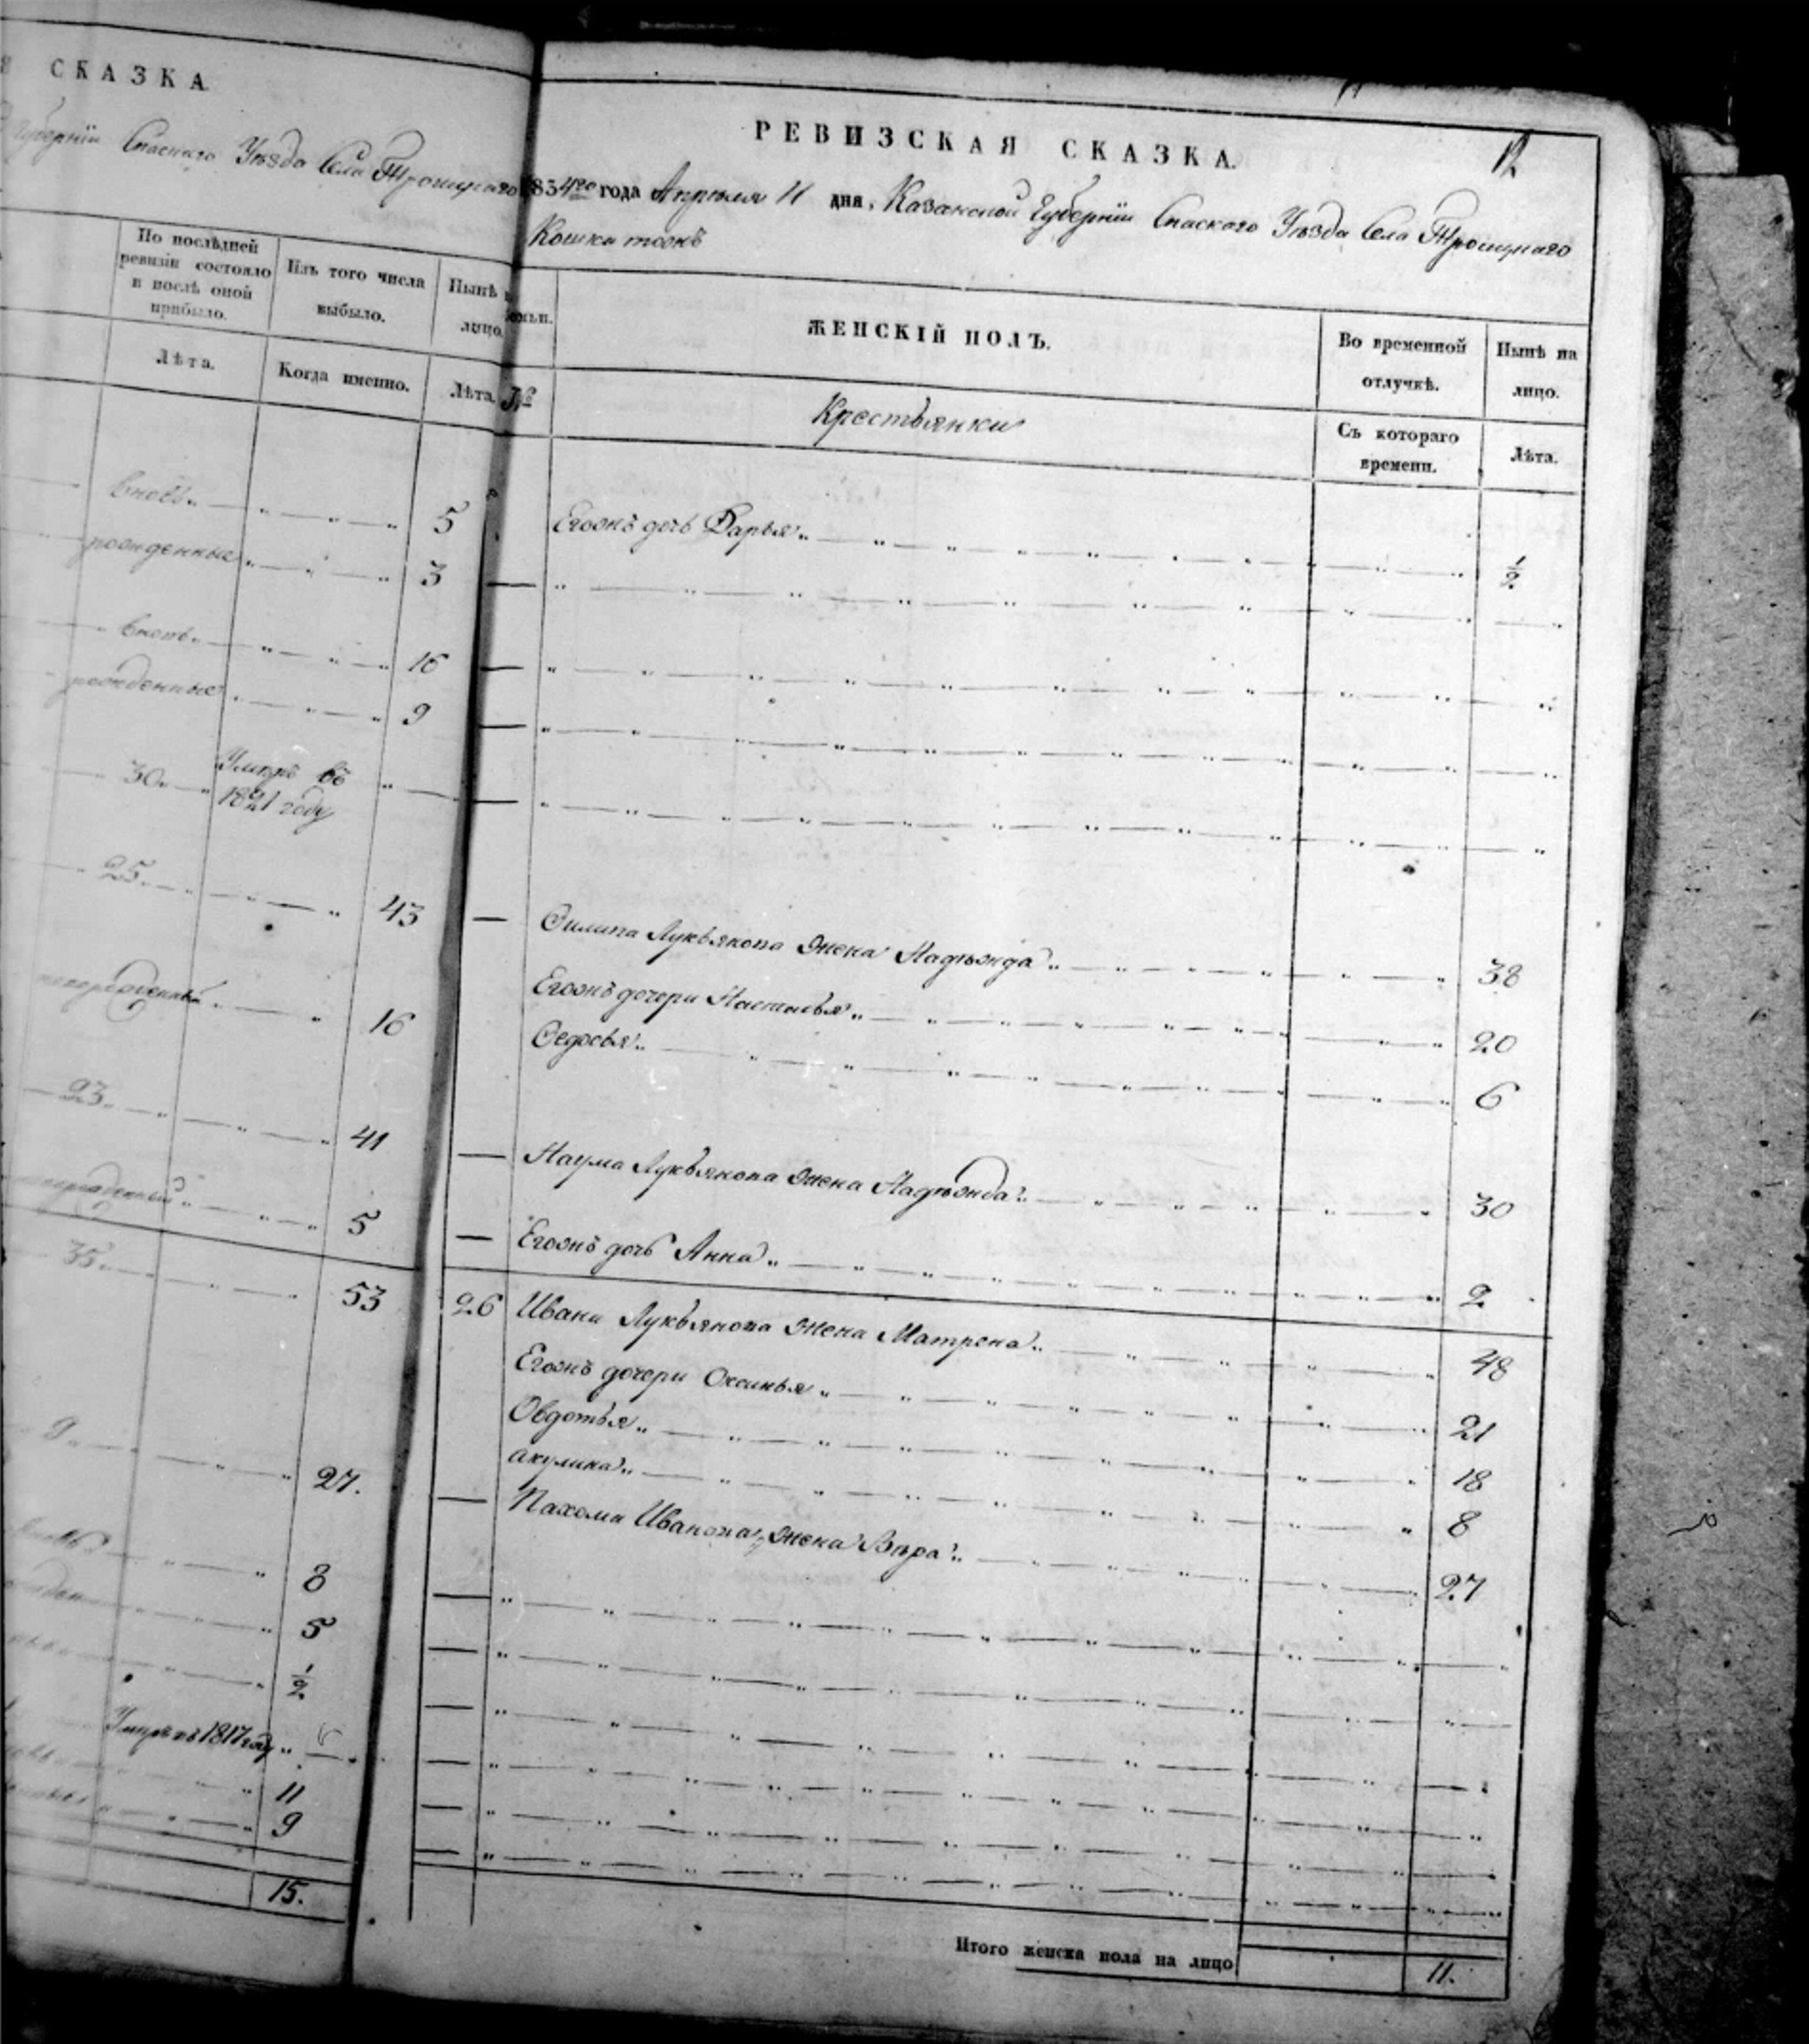 СКАЗКА
Губерніи Спаскаго Уѣзда Села Троицкаго
По послѣдней ревизіи состояло и послѣ оной прибыло.
Изъ того числа выбыло.
Нынѣ
лицо.
Лѣта.
Когда именно.
Лѣта.
вновь 5
рожденные 3
вновь 16
рожденные 9
30 Умеръ въ 1821 году
25 43
16
23 41
5
35 53
9 27.
8
5
1/2
Умръ въ 1817 году
11
9
15.
12
РЕВИЗСКАЯ СКАЗКА.
1834го года Апреля 11 дня, Казанской Губерніи Спаскаго Уѣзда Села Троицкаго
семьи.
ЖЕНСКІЙ ПОЛЪ.
Во временной отлучкѣ.
Нынѣ на лицо.
№
Крестьянки
Съ котораго времени.
Лѣта.
Егожъ дочь Дарья 1/2
Филипа Лукьянова жена Надѣжда 38
Егожъ дочери Настасья 20
Федосья 6
Наума Лукьянова жена Надѣжда 30
Егожъ дочь Анна 2
26 Ивана Лукьянова жена Матрена 48
Егожъ дочери Оксинья 21
Овдотья 18
акулина 8
Пахома Иванова жена Вѣра 27
Итого женска пола на лицо 11.